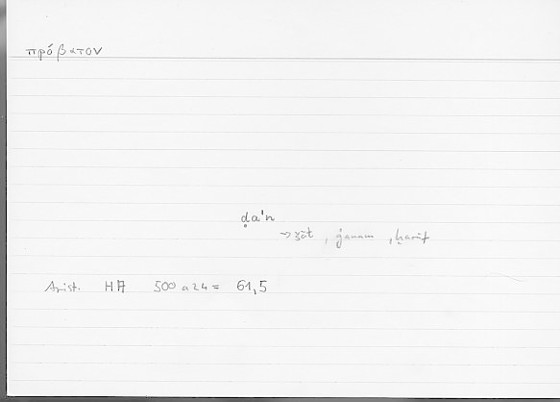 πρόβατον
ḍa'n
→ šāt, ġanam, ḫarūf
Arist. HA 500 a 24 = 61,5